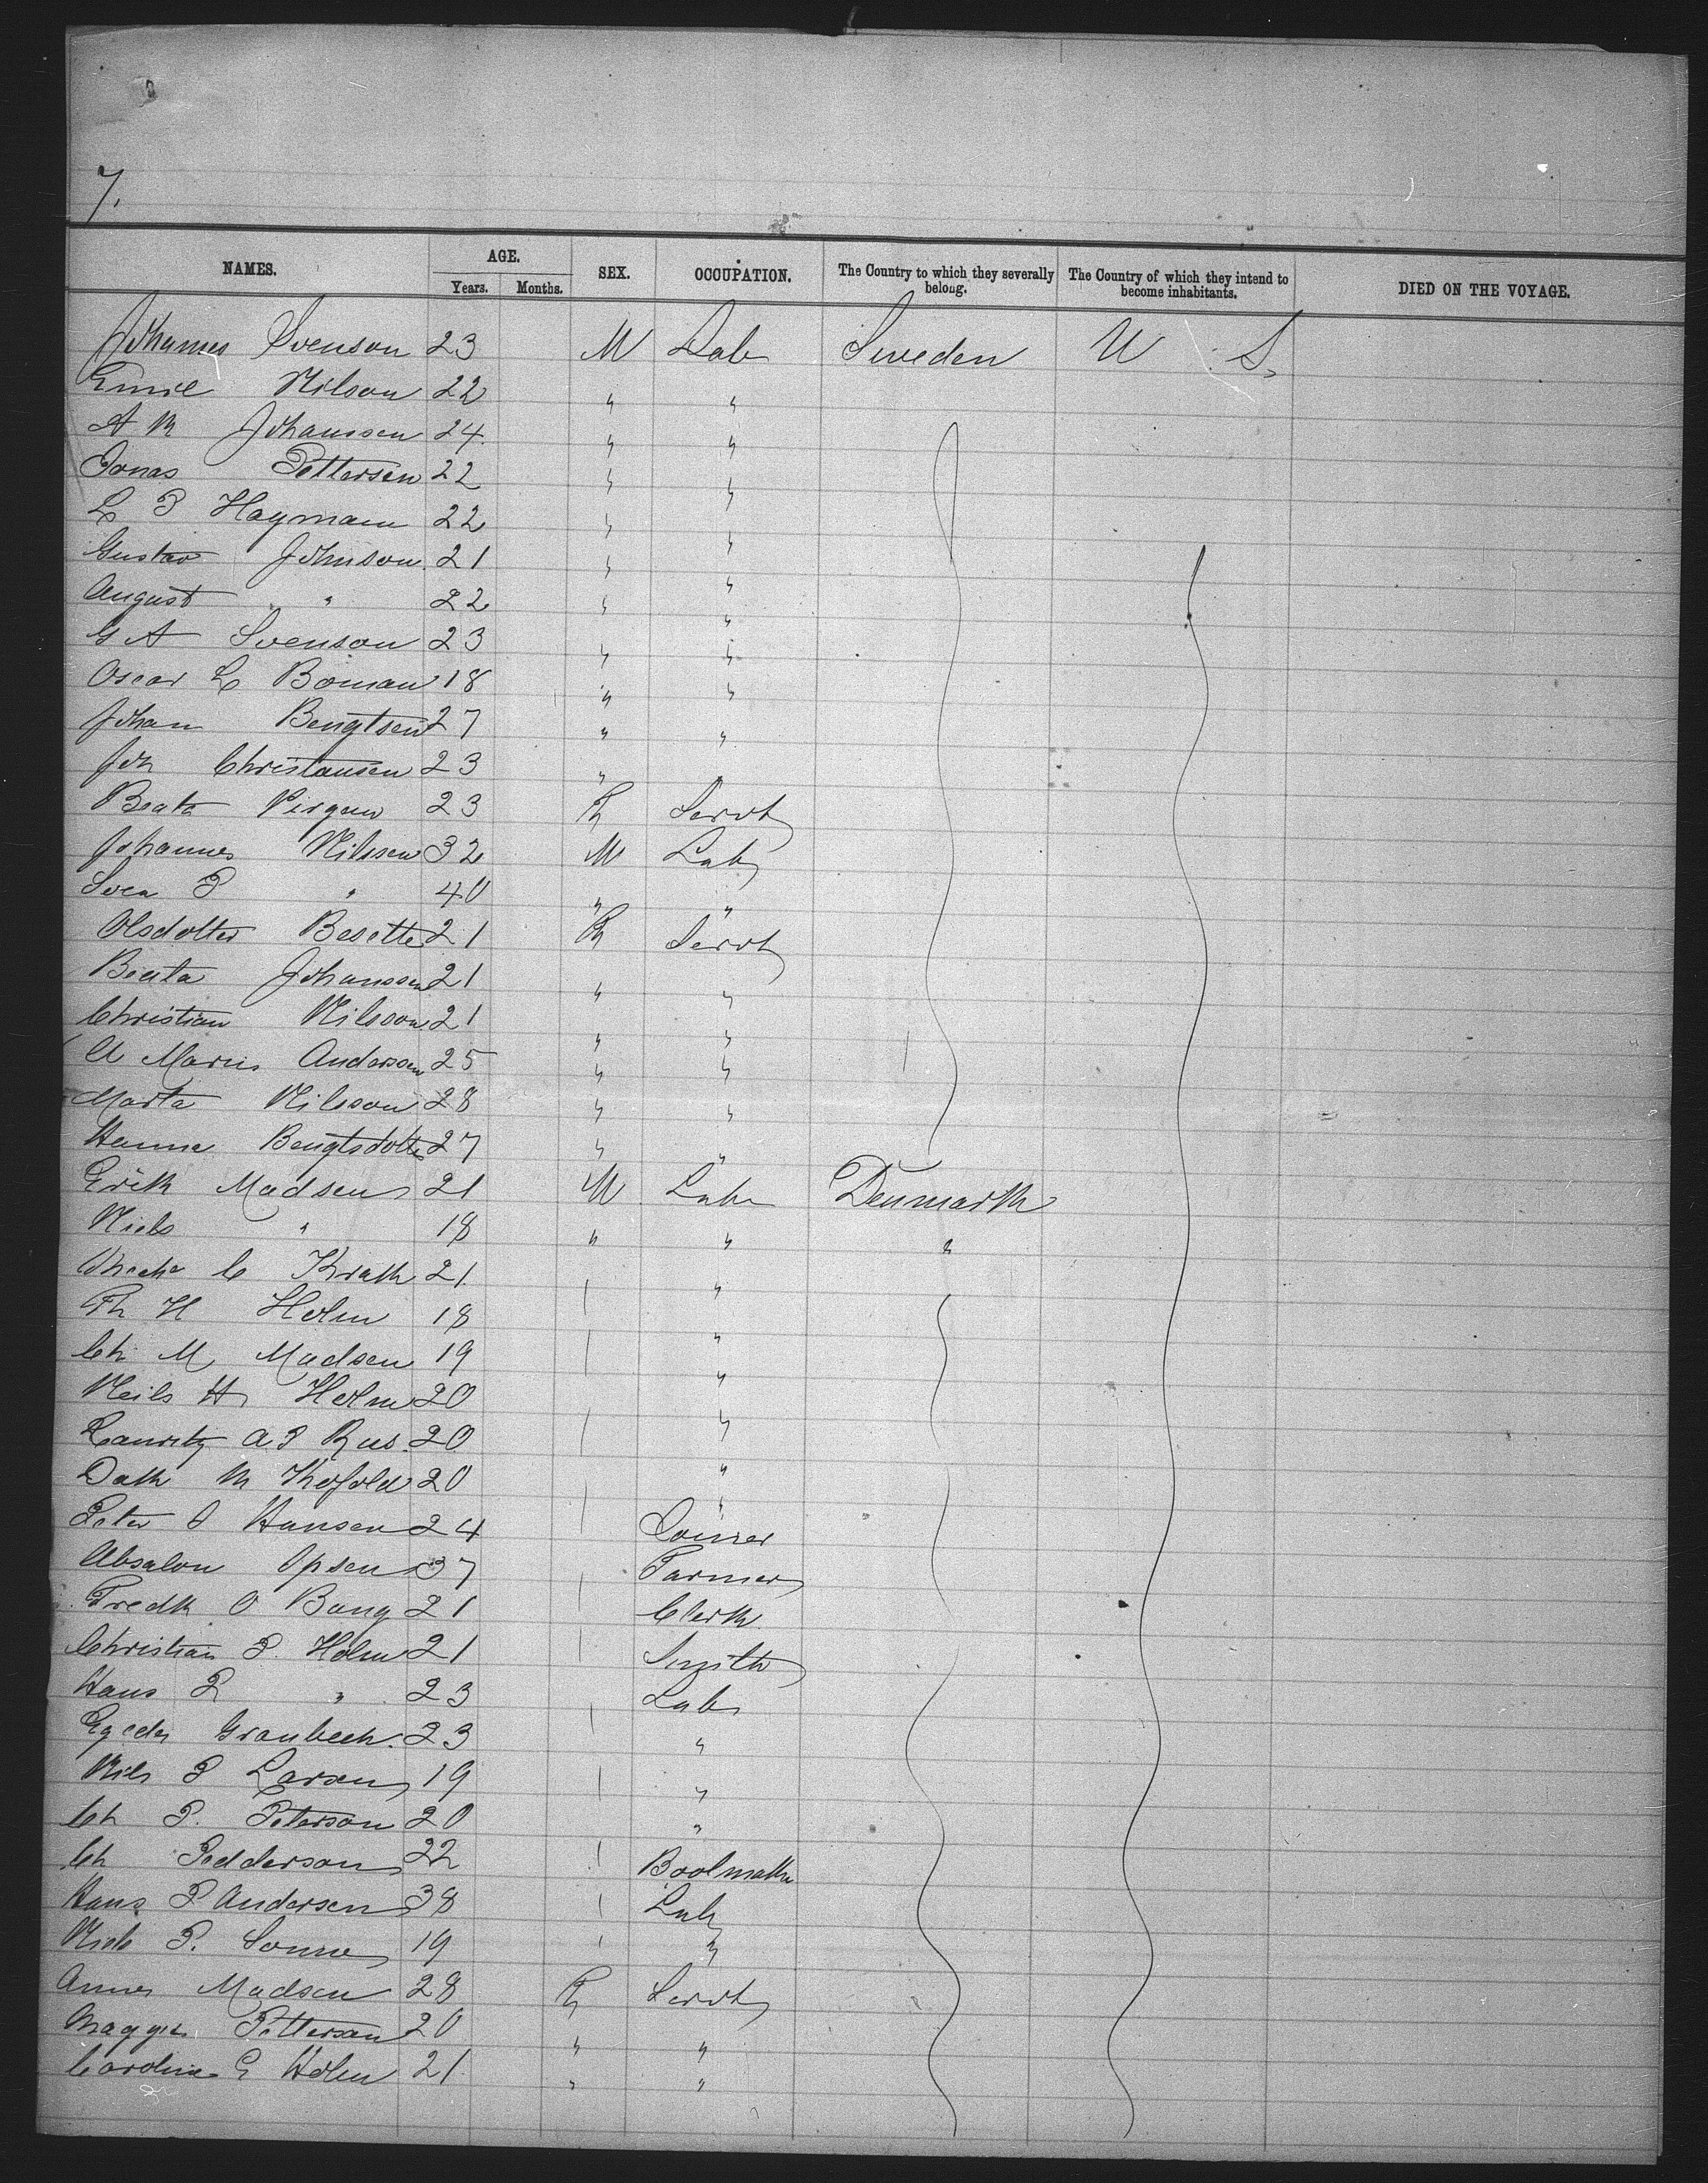 7.
NAMES. AGE. Years. Months. SEX. OCCUPATION. The Country to which they severally belong. The Country of which they intend to become inhabitants. DIED ON THE VOYAGE.
Johannes Svenson 23 M Lab Sweden U S.
Emil Nilson 22 " "
A M Johanssen 24. " "
Jonas Pettersen 22 " "
L P Hagman 22 " "
Gustav Johnson 21 " "
August " 22 " "
G A Svenson 23 " "
Oscar L Boman 18 " "
Johan Bengtsen 27 " "
Joh Christansen 23 " "
Beata 23 F Servt
Johannes Nilssen 32 M Lab
Sven P " 40 " "
Olsdotter 21 F Servt
Beata Johanssen 21 " "
Christian Nilsson 21 " "
A Maria Anderson 25 " "
Marta Nilsson 28 " "
Hanna Bengtsdotter 27 " "
Erik Madsen 21 M Lab Denmark
Niels " 18 " " "
C 21. "
H Holm 18 "
Ch M Madsen 19 "
Neils H Holm 20 "
Lauritz A P 20 "
M 20 "
Peter O Hansen 24 Joiner
Absalon Opsen 37 Farmer
Fredk O Bang 21 Clerk
Christian P. Holm 21 Smith
Hans P " 23 Lab
23 "
Nils P Larsen 19 "
Ch P. Peterson 20 "
Ch Pedderson 22
Hans P Andersen 38 Lab
Niels P. 19 "
Anna Madsen 28 F Servt
Maggie Petterson 20 " "
Caroline E Holm 21. " "